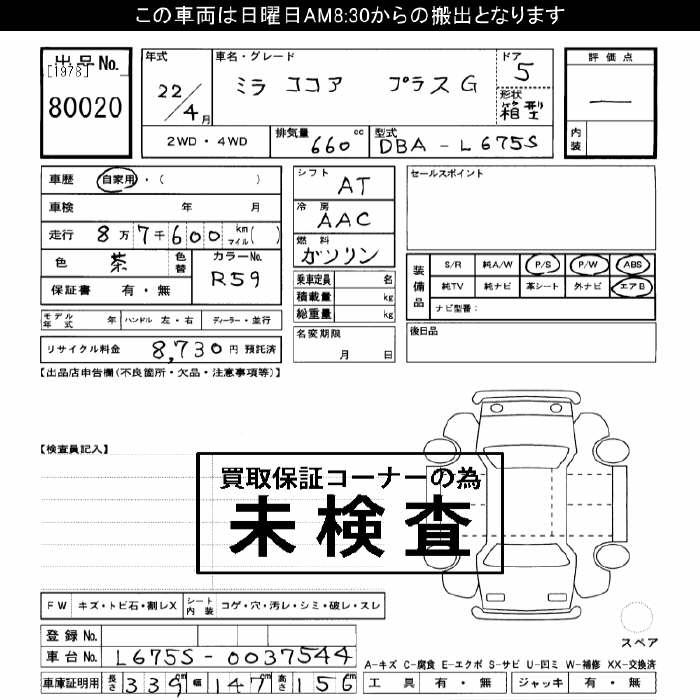 この車両は日曜日AM8:30からの搬出となります
出品No.
[1978]
80020
年式
22/4月
車名・グレード
ミラ ココア プラスG
ドア
5
形状
箱型
評価点
—
内装
2WD・4WD
排気量 660 cc
型式 DBA-L675S
車歴 自家用・( )
車検 年 月
走行 8万7千600 km マイル( )
色 茶 色替
カラーNo.
R59
保証書 有・無
シフト
AT
冷房
AAC
燃料
ガソリン
乗車定員 名
積載量 kg
総重量 kg
名変期限
月 日
セールスポイント
装備品
S/R 純A/W P/S P/W ABS
純TV 純ナビ 革シート 外ナビ エアB
ナビ型番:
後日品
モデル年式 年 ハンドル 左・右 ディーラー・並行
リサイクル料金 8,730 円 預託済
【出品店申告欄(不良箇所・欠品・注意事項等)】
【検査員記入】
買取保証コーナーの為
未検査
FW キズ・トビ石・割レX シート内装 コゲ・穴・汚レ・シミ・破レ・スレ
スペア
登録No.
車台No. L675S-0037544
A-キズ C-腐食 E-エクボ S-サビ U-凹ミ W-補修 XX-交換済
車庫証明用 長さ 339 幅 147 高さ 156
工具 有・無 ジャッキ 有・無